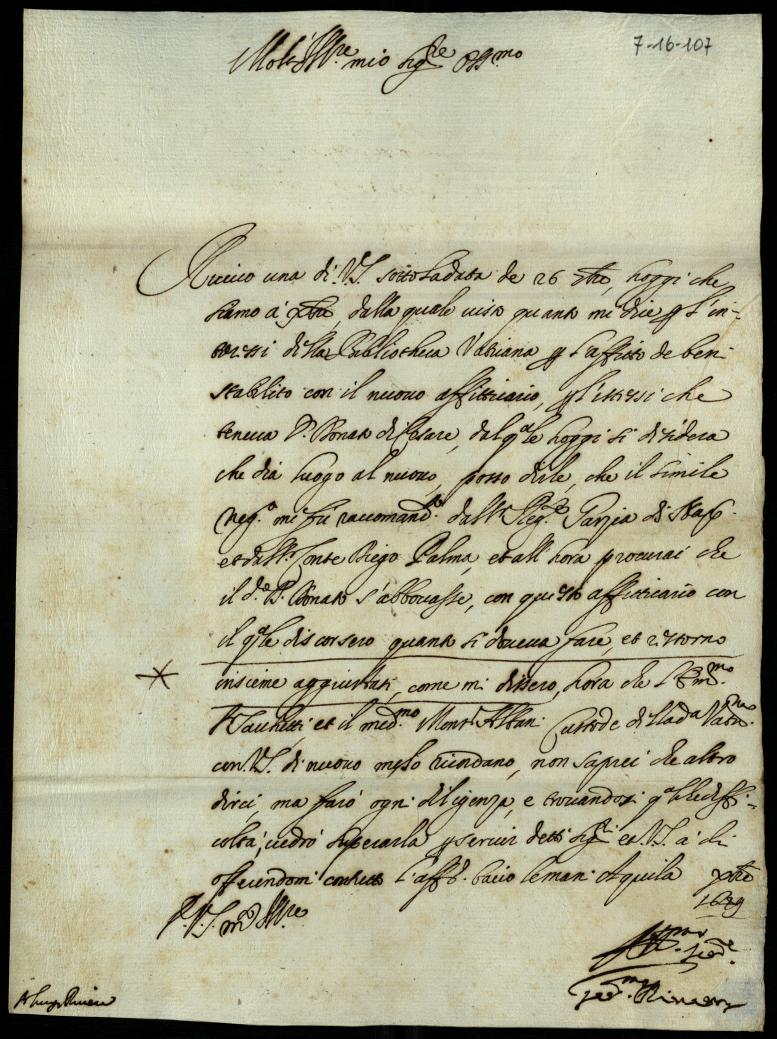 7-16-107
Molt' Ill.re mio sig.re oss.mo
Ricevo una di V.S. sotto la data de 26 hoggi che
siamo a' dalla quale visto quanto mi dice p l'in-
teressi della Bibliotheca Vaticana p l'affitto de beni
stabilito con il nuovo affittuario, p l'istessi che
teneva Donato di Cesare, dal q.le hoggi si desidera
che dia luogo al nuovo, posso dirle, che il simile
neg.o mi fu raccomand.to dall' Reg.te Garzia
et dall' Conte Diego Palma et all'hora procurai che
il d.o Donato s'abboccasse, con questo affittuario con
il q.le discorsero quanto si doveva fare, et ritorno
insieme aggiustati, come mi dissero, hora che l' Em.mo
Sacchetti et il med.mo Mons.r Custode della
con V.S. di nuovo melo non saprei che altro
dirci, ma farò ogni diligenza, e trovandosi q.lche diffi-
coltà, vedrò superarla p servir detti sig.ri et V.S. a' chi
offerendomi l'aff.o bacio le mani Aquila
D. V.S. m.o Ill.re